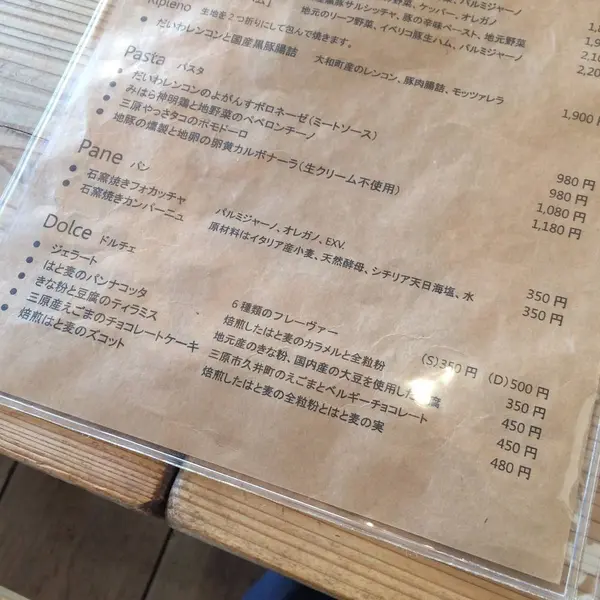 パルミジャーノ
野菜、ケッパー、オレガノ
黒豚サルシッチャ、豚の辛味ペースト、地元野菜
地元のリーフ野菜、イベリコ豚生ハム、パルミジャーノ
2,100
2,200
Ripieno 生地を2つ折りにして包んで焼きます。
• だいわレンコンと国産黒豚腸詰 大和町産のレンコン、豚肉腸詰、モッツァレラ 1,900 円
Pasta パスタ
• だいわレンコンのよがんすボロネーゼ(ミートソース) 980 円
• みはら神明鶏と地野菜のペペロンチーノ 980 円
• 三原やっさタコのポモドーロ 1,080 円
• 地豚の燻製と地卵の卵黄カルボナーラ(生クリーム不使用) 1,180 円
Pane パン
• 石窯焼きフォカッチャ パルミジャーノ、オレガノ、EXV. 350 円
• 石窯焼きカンパーニュ 原材料はイタリア産小麦、天然酵母、シチリア天日海塩、水 350 円
Dolce ドルチェ
• ジェラート 6種類のフレーヴァー (S)350 円 (D)500 円
• はと麦のパンナコッタ 焙煎したはと麦のカラメルと全粒粉 350 円
• きな粉と豆腐のティラミス 地元産のきな粉、国内産の大豆を使用した 腐 450 円
• 三原産えごまのチョコレートケーキ 三原市久井町のえごまとベルギーチョコレート 450 円
• 焙煎はと麦のズコット 焙煎したはと麦の全粒粉とはと麦の実 480 円